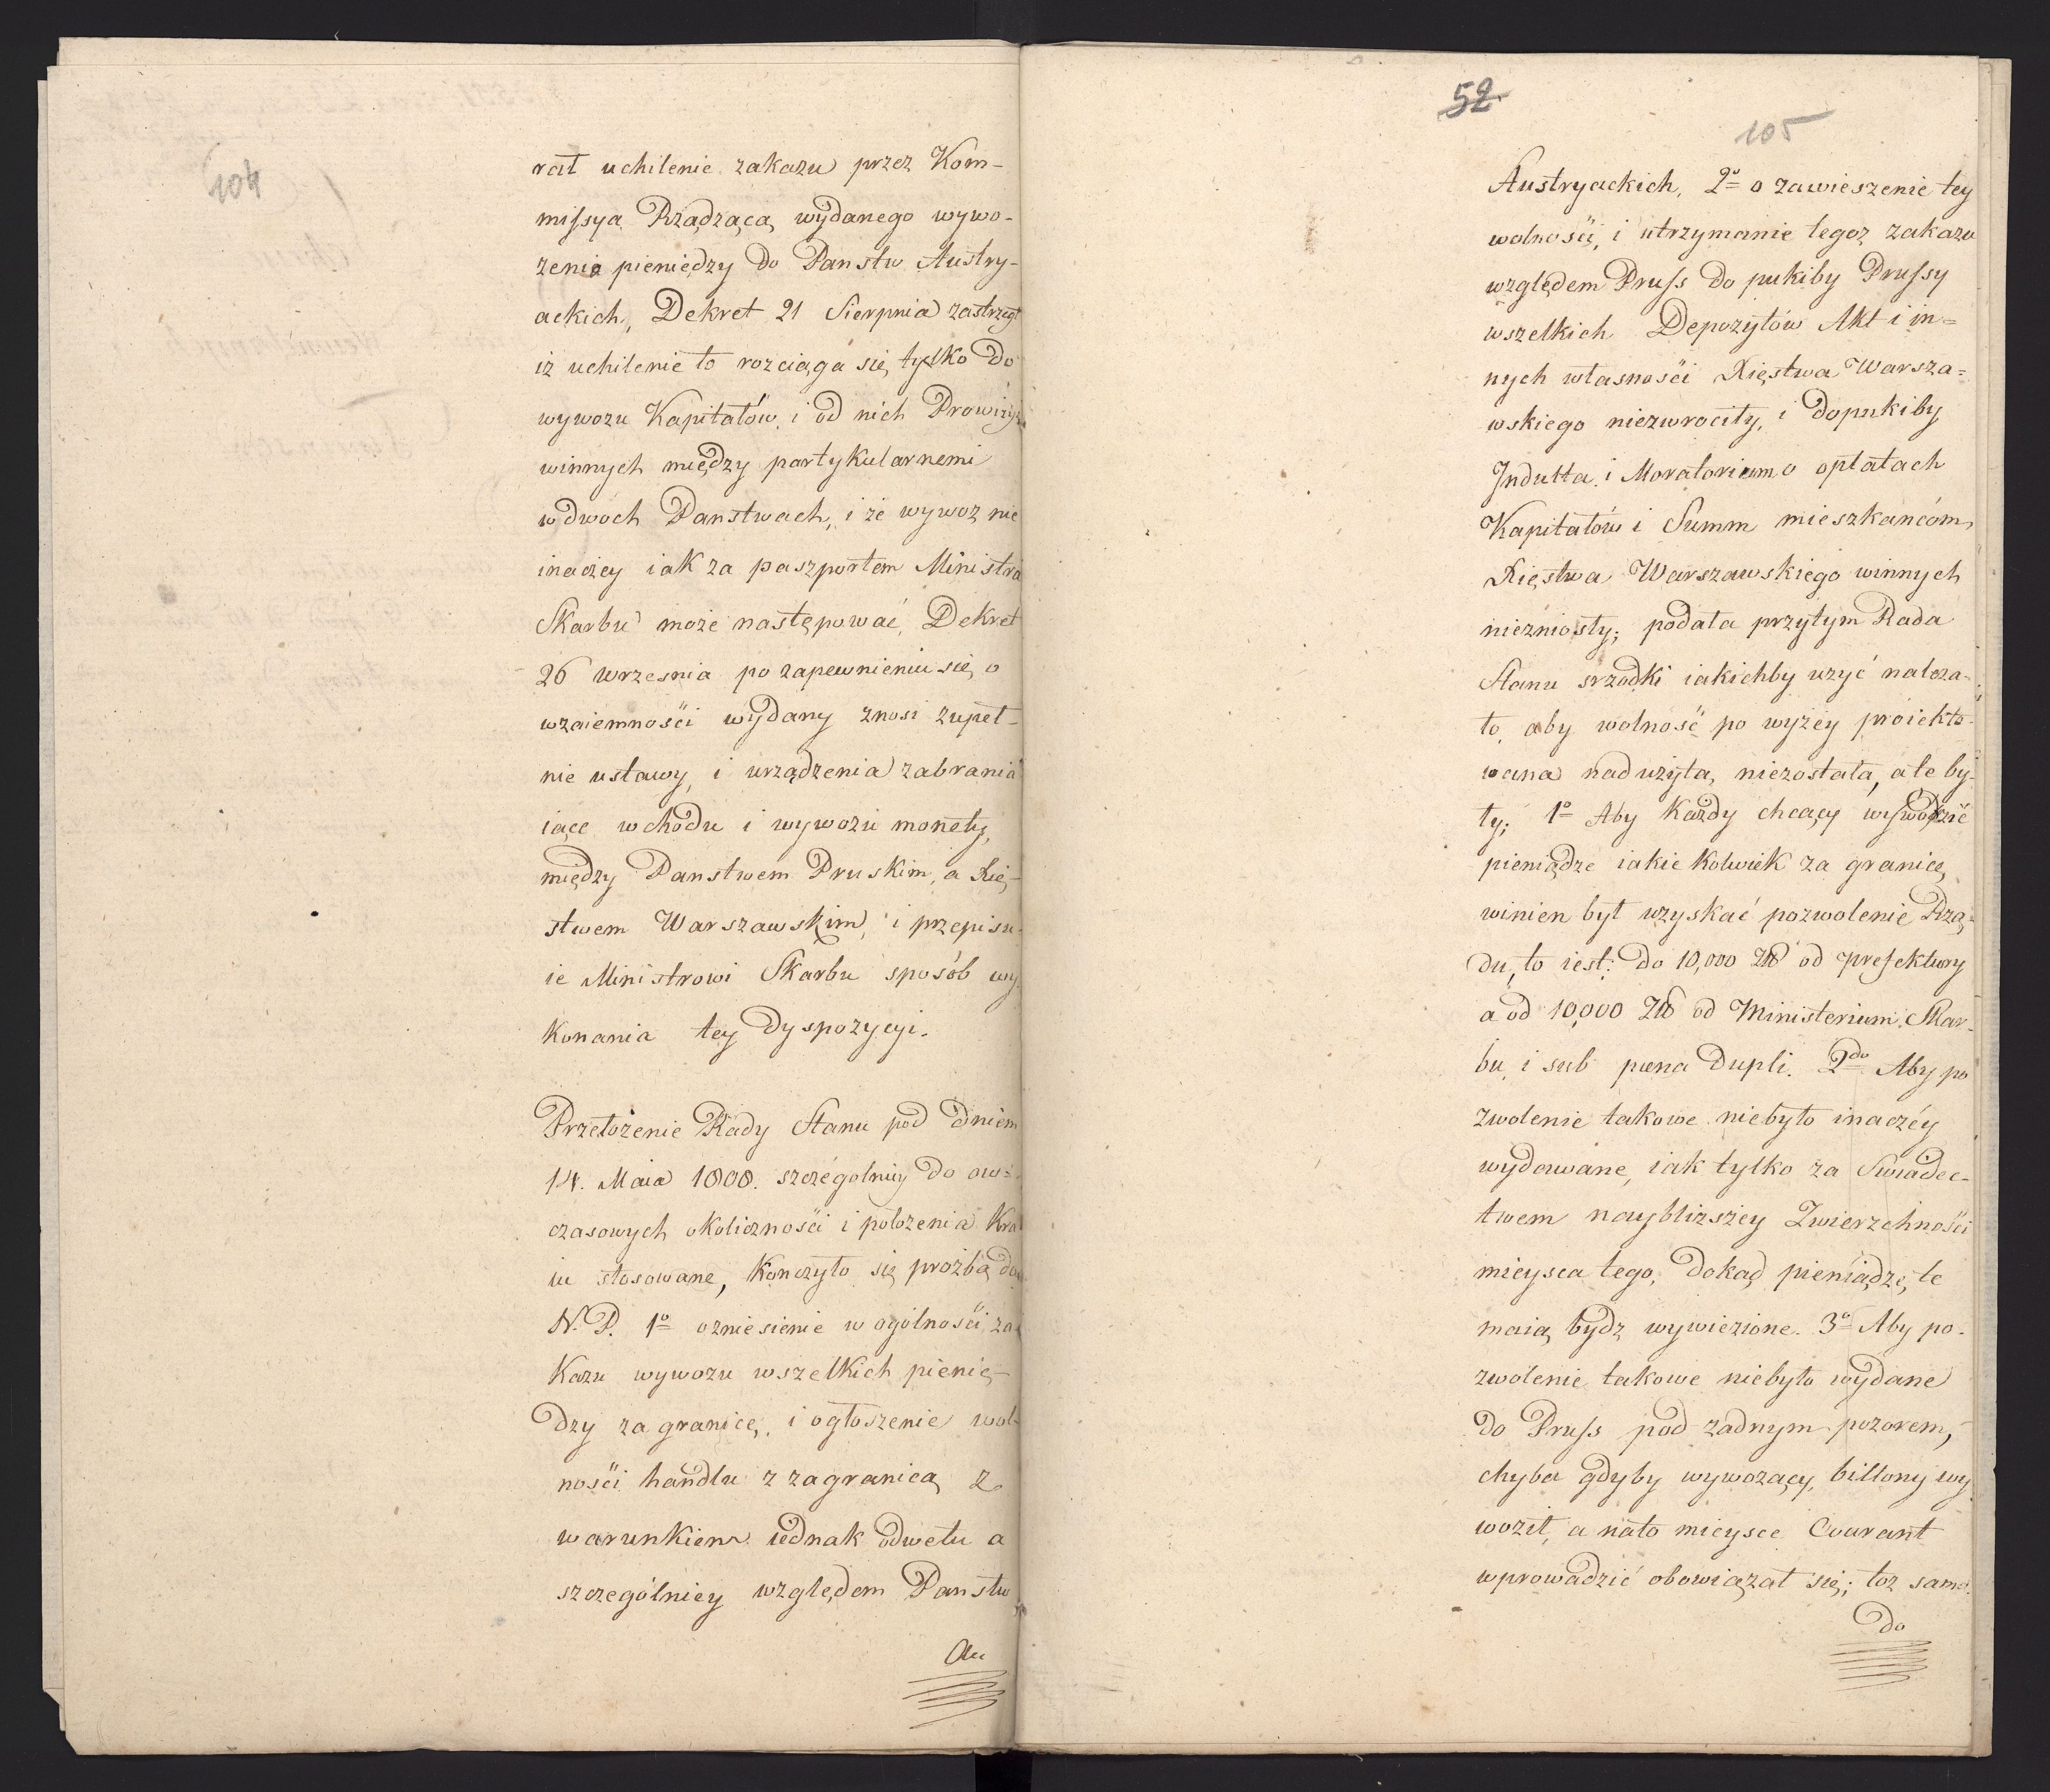 104
rał uchilenie zakazu przez Kom-
missya Rządzącą wydanego wywo-
zenia pieniędzy do Panstw Austry-
ackich, Dekret 21 Sierpnia zastrzegł
iż uchilenie to rozciąga się tylko do
wywozu Kapitałów, i od nich Prowizyi
winnych między partykularnemi
w dwoch Panstwach, i że wywoz nie
inaczey iak za paszportem Ministra
Skarbu może następować, Dekret
26 Wrzesnia po zapewnieniu się o
wzaiemności wydany znosi zupeł-
nie ustawy, i urządzenia zabrania
iące wchodu i wywozu monety,
między Panstwem Pruskim, a Xię-
stwem Warszawskim, i przepisu-
ie Ministrowi Skarbu sposób wy-
konania tey dyspozycyi.
Przełożenie Rady Stanu pod dniem
14. Maia 1808. szczególniey do ow-
czasowych okoliczności i położenia Kra
iu stosowane, kończyło się prożbą do
N. P. 1º o zniesienie w ogólności za-
kazu wywozu wszelkich pienię-
dzy za granicę, i ogłoszenie wol-
ności handlu z zagranicą z
warunkiem iednak odwetu a
szczególniey względem Panstw
Au
52
105
Austryackich, 2º o zawieszenie tey
wolności, i utrzymanie tegoż zakazu
względem Pruss do pukiby Prussy
wszelkich Depozytów Akt i in=
nych własności Xięstwa Warsza=
wskiego niezwrociły, i dopukiby
Indulta i Moratorium o opłatach
Kapitałów i Summ mieszkancóm
Xięstwa Warszawskiego winnych
niezniosły; podała przytym Rada
Stanu srzodki iakichby użyć należa-
ło, aby wolność po wyżey proiekto-
wana nadużyta, niezostała, a te by-
ły; 1º Aby Każdy chcący wywozić
pieniądze iakiekolwiek za granicę,
winien był uzyskać pozwolenie Rzą-
du, to iest: do 10,000 Zł od Prefektury
a od 10,000 Zł od Ministerium Skar-
bu, i sub pœna dupli. 2do Aby po
zwolenie takowe niebyło inaczéy
wydawane, iak tylko za Swiadec-
twem naybliższey Zwierzchności
mieysca tego, dokąd pieniądze te
maią bydz wywiezione. 3º Aby po-
zwolenie takowe niebyło wydane
do Pruss pod żadnym pozorem,
chyba gdyby wywozący, billony wy
woził, a nato mieysce Courant
wprowadzić obowiązał się; toż samo
do